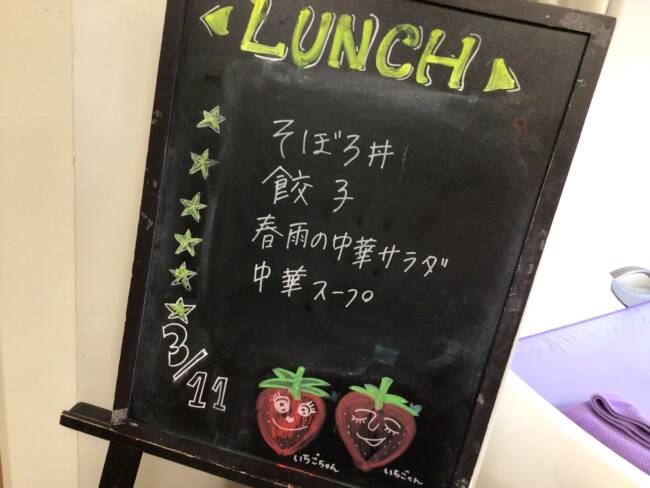 LUNCH
そぼろ丼
餃子
春雨の中華サラダ
中華スープ
3/11
いちごちゃん
いちごくん